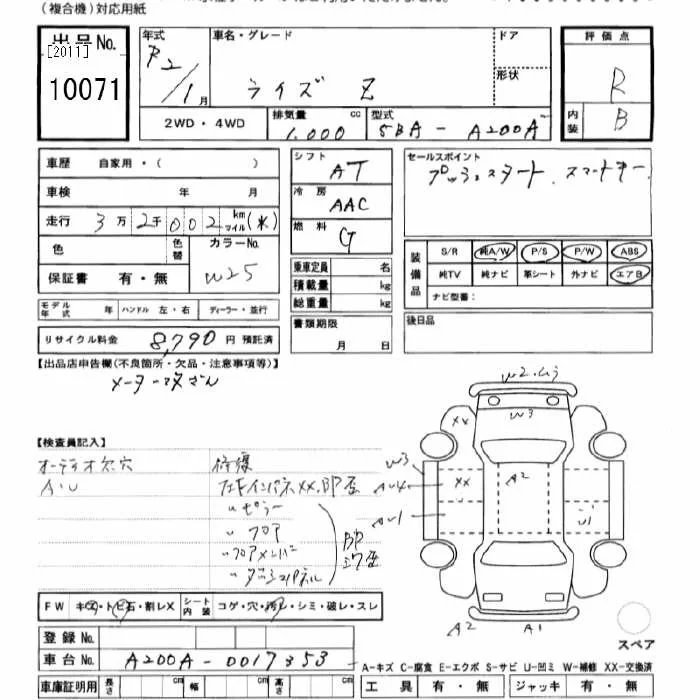 (複合機)対応用紙
出品No.
[2011]
10071
年式
R2/1月
車名・グレード
ライズ Z
ドア
形状
評価点
R
内装
B
2WD・4WD
排気量 cc
1,000
型式
5BA - A200A
車歴 自家用・( )
車検 年 月
走行 3万2千002 km マイル(米)
色
色替
カラーNo.
W25
保証書 有・無
シフト
AT
冷房
AAC
燃料
G
乗車定員 名
積載量 kg
総重量 kg
書類期限
月 日
セールスポイント
プッシュスタート、スマートキー
装備品
S/R 純A/W P/S P/W ABS
純TV 純ナビ 革シート 外ナビ エアB
ナビ型番:
後日品
モデル年式 年 ハンドル 左・右 ディーラー・並行
リサイクル料金 8,790 円 預託済
【出品店申告欄(不良箇所・欠品・注意事項等)】
メーター改ざん
【検査員記入】
オーディオ欠穴
A・U
修復
〃ピラー
〃フロア
〃フロアメンバー
W2・ムラ
XX
W3
W3
XX
A2
AU4
AU1
U1
A2
A1
スペア
FW キズ・トビ石・割レX シート内装 コゲ・穴・汚レ・シミ・破レ・スレ
登録No.
車台No. A200A-0017353
車庫証明用 長さ cm 幅 cm 高さ cm
A-キズ C-腐食 E-エクボ S-サビ U-凹ミ W-補修 XX-交換済
工具 有・無 ジャッキ 有・無